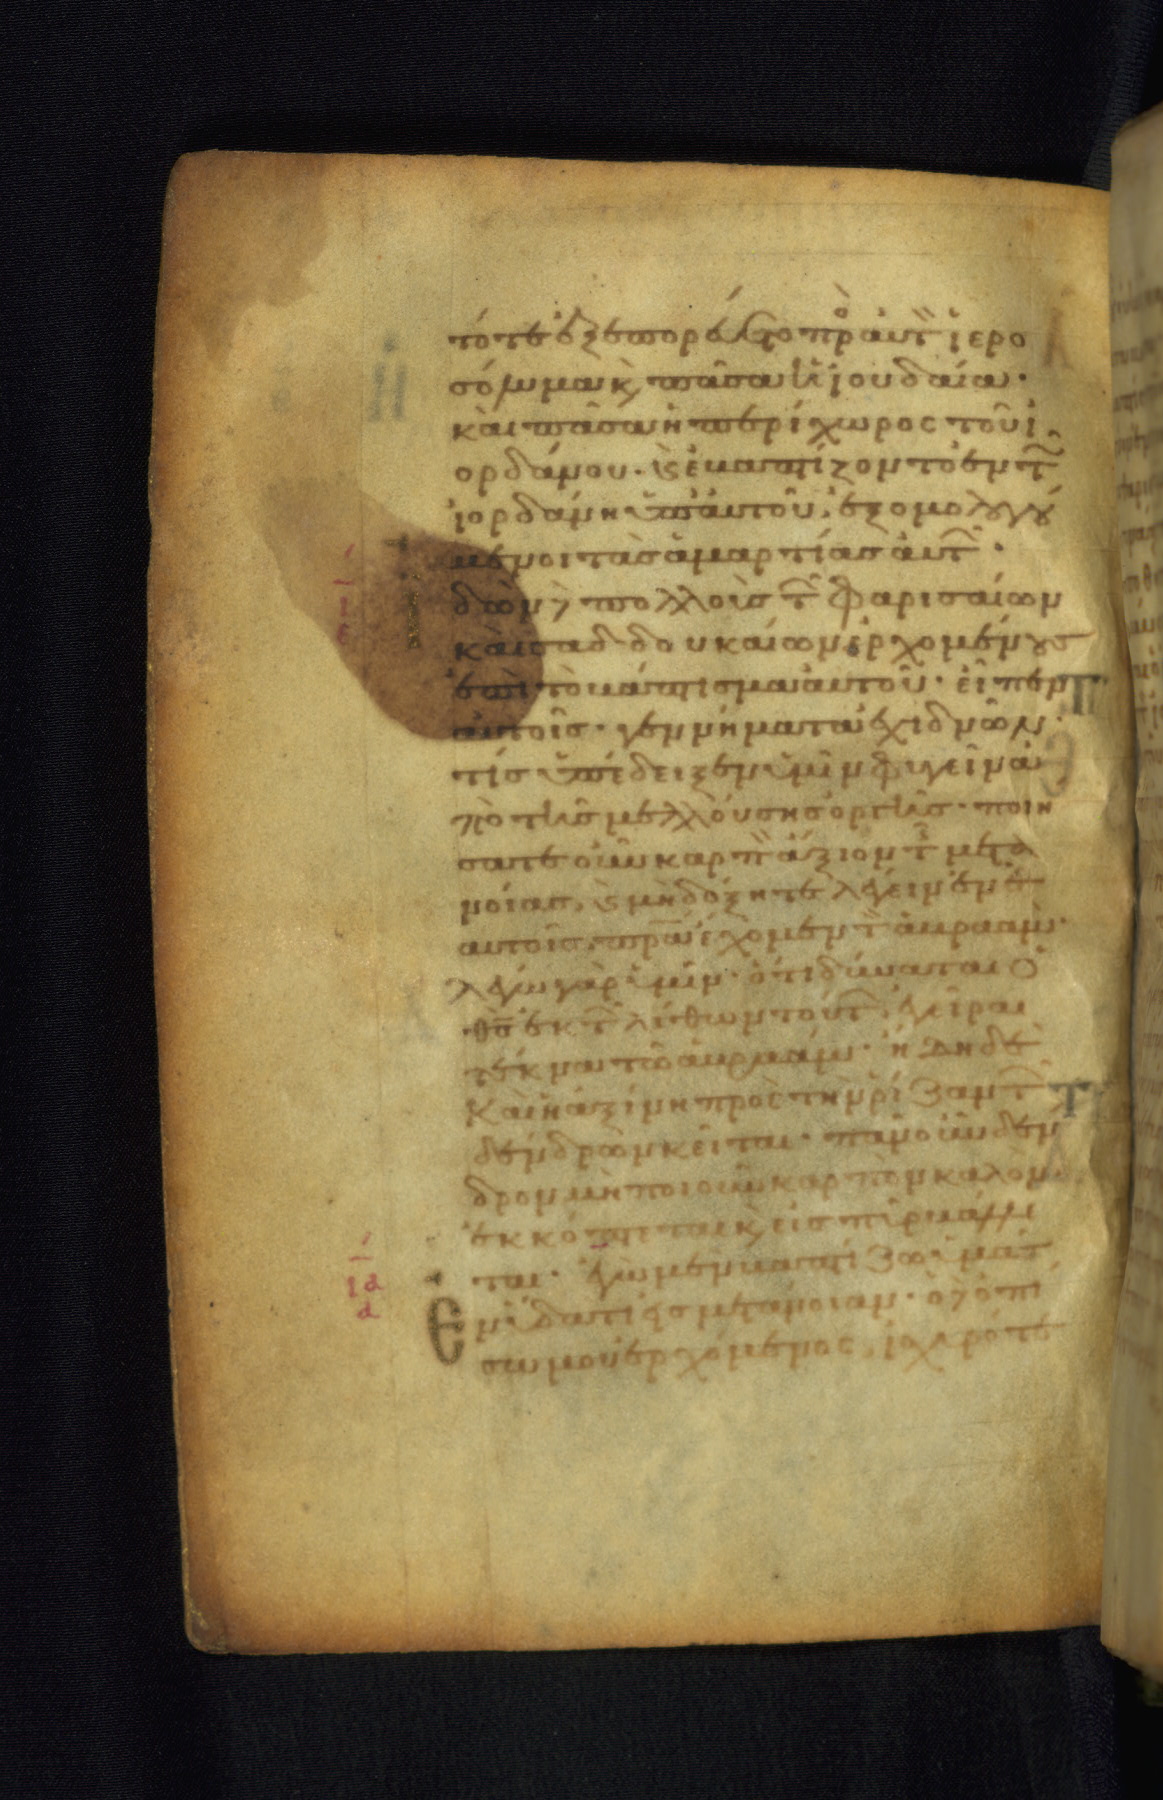 τότε ἐξεπορεύετο πρὸ αὐτ ἱερο
σόλυμα κ πᾶσα ἡ ἰουδαία·
καὶ πᾶσα ἡ περίχωρος τοῦ ἰ
ορδάνου· κ ἐβαπτίζοντο ἐν τ
ἰορδάνη ὑπ αὐτοῦ, ἐξομολογού
μενοι τὰσ ἁμαρτίασ αὐτ·
ἰδὼν δ πολλοὺσ τ φαρισαίων
καὶ σαδδουκαίων ἐρχομένουσ
ἐπὶ τὸ βάπτισμα αὐτοῦ· εἶπεν
αὐτοῖσ· γεννήματα ἐχιδνῶν·
τίσ ὑπέδειξεν ὑμῖν φυγεῖν ἀ
πὸ τῆσ μελλούσησ ὀργῆσ· ποιη
σατε οὖν καρπ ἄξιον τ μετα
νοίασ, κ μὴ δόξητε λέγειν ἐν ἑ
αυτοῖσ, πρα ἔχομεν τ ἀβραάμ·
λέγω γὰρ ὑμῖν· ὅτι δύναται ὁ
θσ ἐκ τ λίθων τούτ, ἐγεῖραι
τέκνα τῶ ἀβραάμ· ἤδη δὲ
καὶ ἡ ἀξίνη πρὸς τὴν ρίζαν τ
δένδρων κεῖται· πᾶν οὖν δέν
δρον μὴ ποιοῦν καρπὸν καλὸν
ἐκκόπτεται κ εἰσ πῦρ βάλλε
ται· ἐγὼ μὲν βαπτίζω ὑμᾶσ
ἐν ὕδατι εἰσ μετάνοιαν· ὁ δ ὀπί
σω μου ἐρχόμενος, ἰσχυρότε